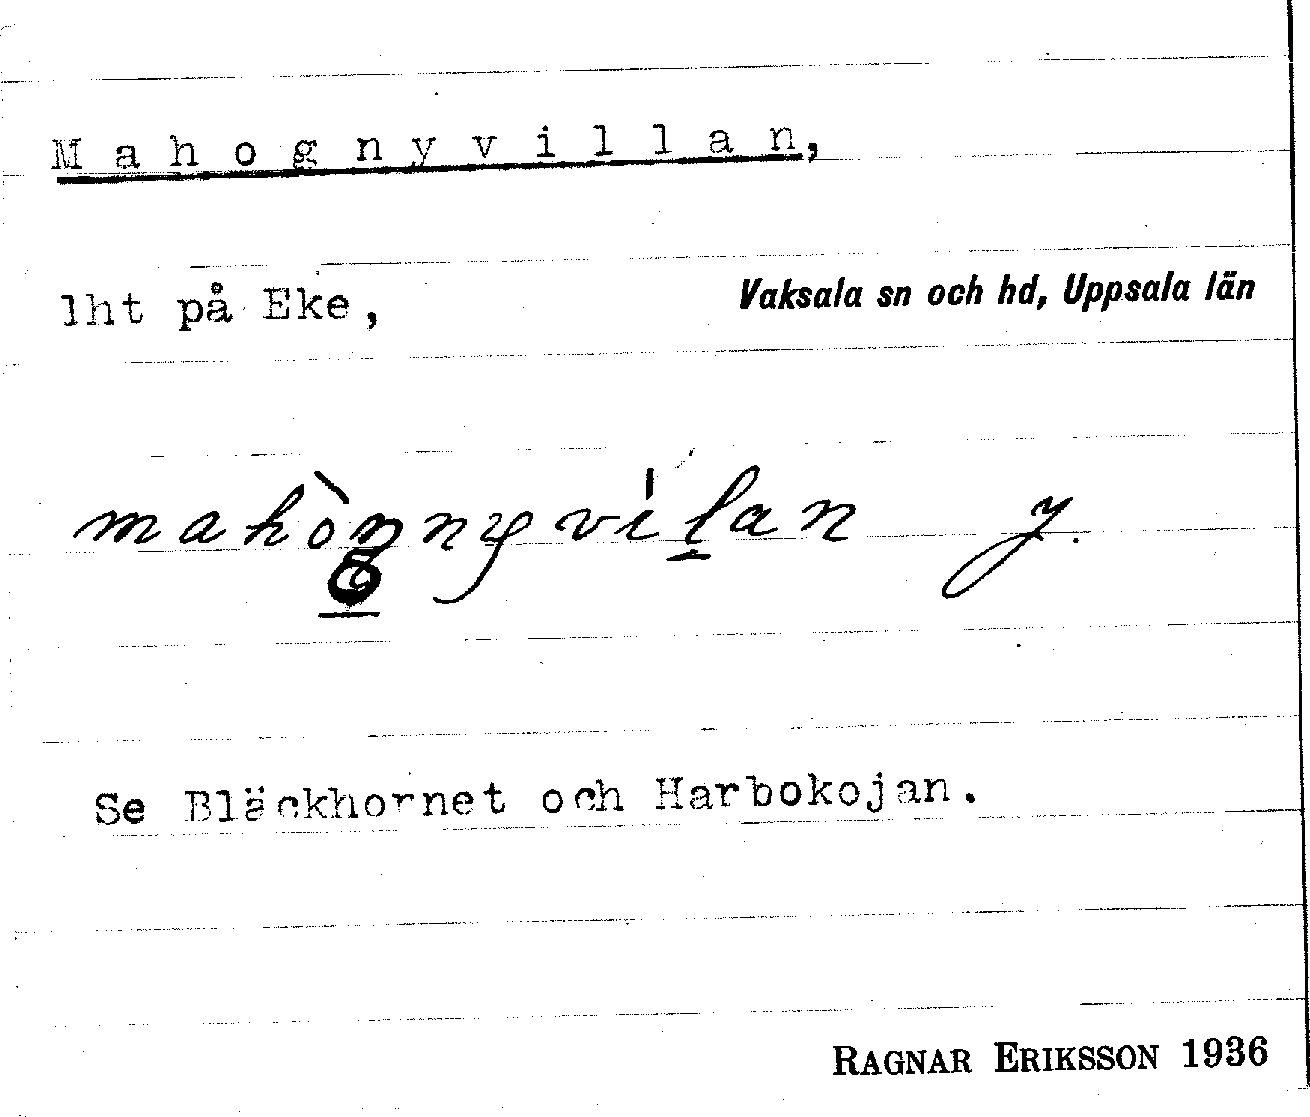 Mahognyvillan,
lht på Eke, Vaksala sn och hd, Uppsala län
mahògnyvílan y.
Se Bläckhornet och Harbokojan.
RAGNAR ERIKSSON 1936